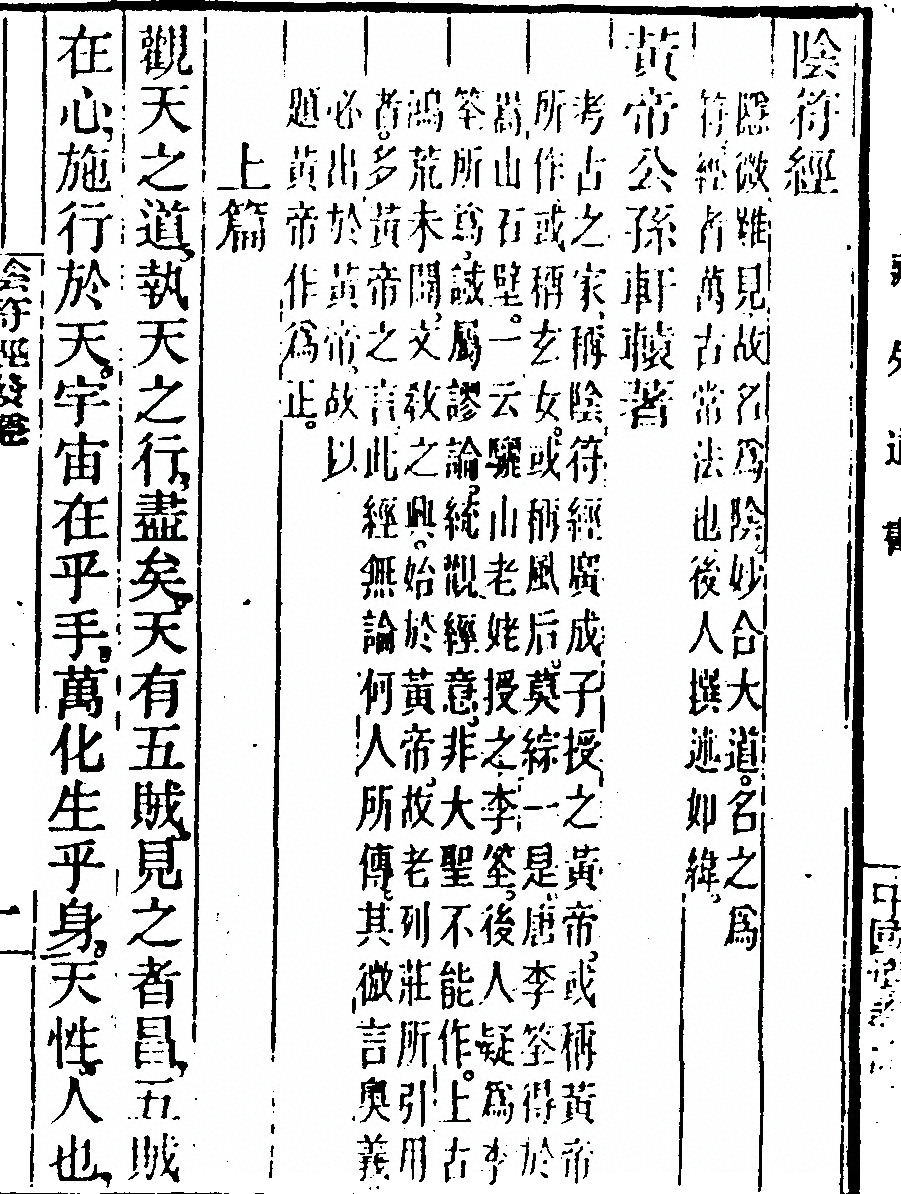 陰符經
隱微難見，故名爲陰，妙合大道。名之爲
符。經者萬古常法也，後人撰述如緯。
黃帝公孫軒轅著
考古之家，稱陰符經廣成子授之黃帝，或稱黃帝
所作或稱玄女。或稱風后。莫綜一是，唐李筌得於
嵩山石壁。一云驪山老姥授之李筌。後人疑爲李
筌所爲，誠屬謬論，統觀經意，非大聖不能作。上古
鴻荒未闢，文教之興。始於黃帝，故老列莊所引用
者。多黃帝之言，此經無論何人所傳，其微言奧義
必出於黃帝，故以
題黃帝作爲正。
上篇
觀天之道，執天之行，盡矣。天有五賊，見之者昌，五賊
在心，施行於天。宇宙在乎手，萬化生乎身。天性，人也，
陰符經發隱
一
藏外道書